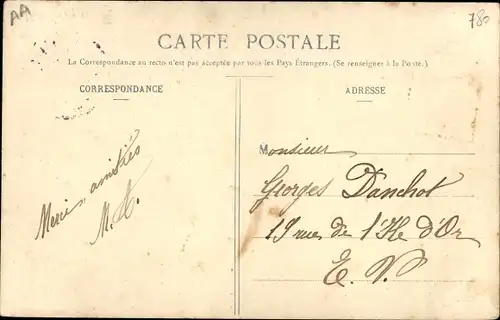 AA
780
CARTE POSTALE
La Correspondance au recto n'est pas acceptée par tous les Pays Étrangers. (Se renseigner à la Poste.)
CORRESPONDANCE
ADRESSE
Merci, amitiés
Monsieur
Georges Danchot
19 rue de l'Ile d'Or
E. V.